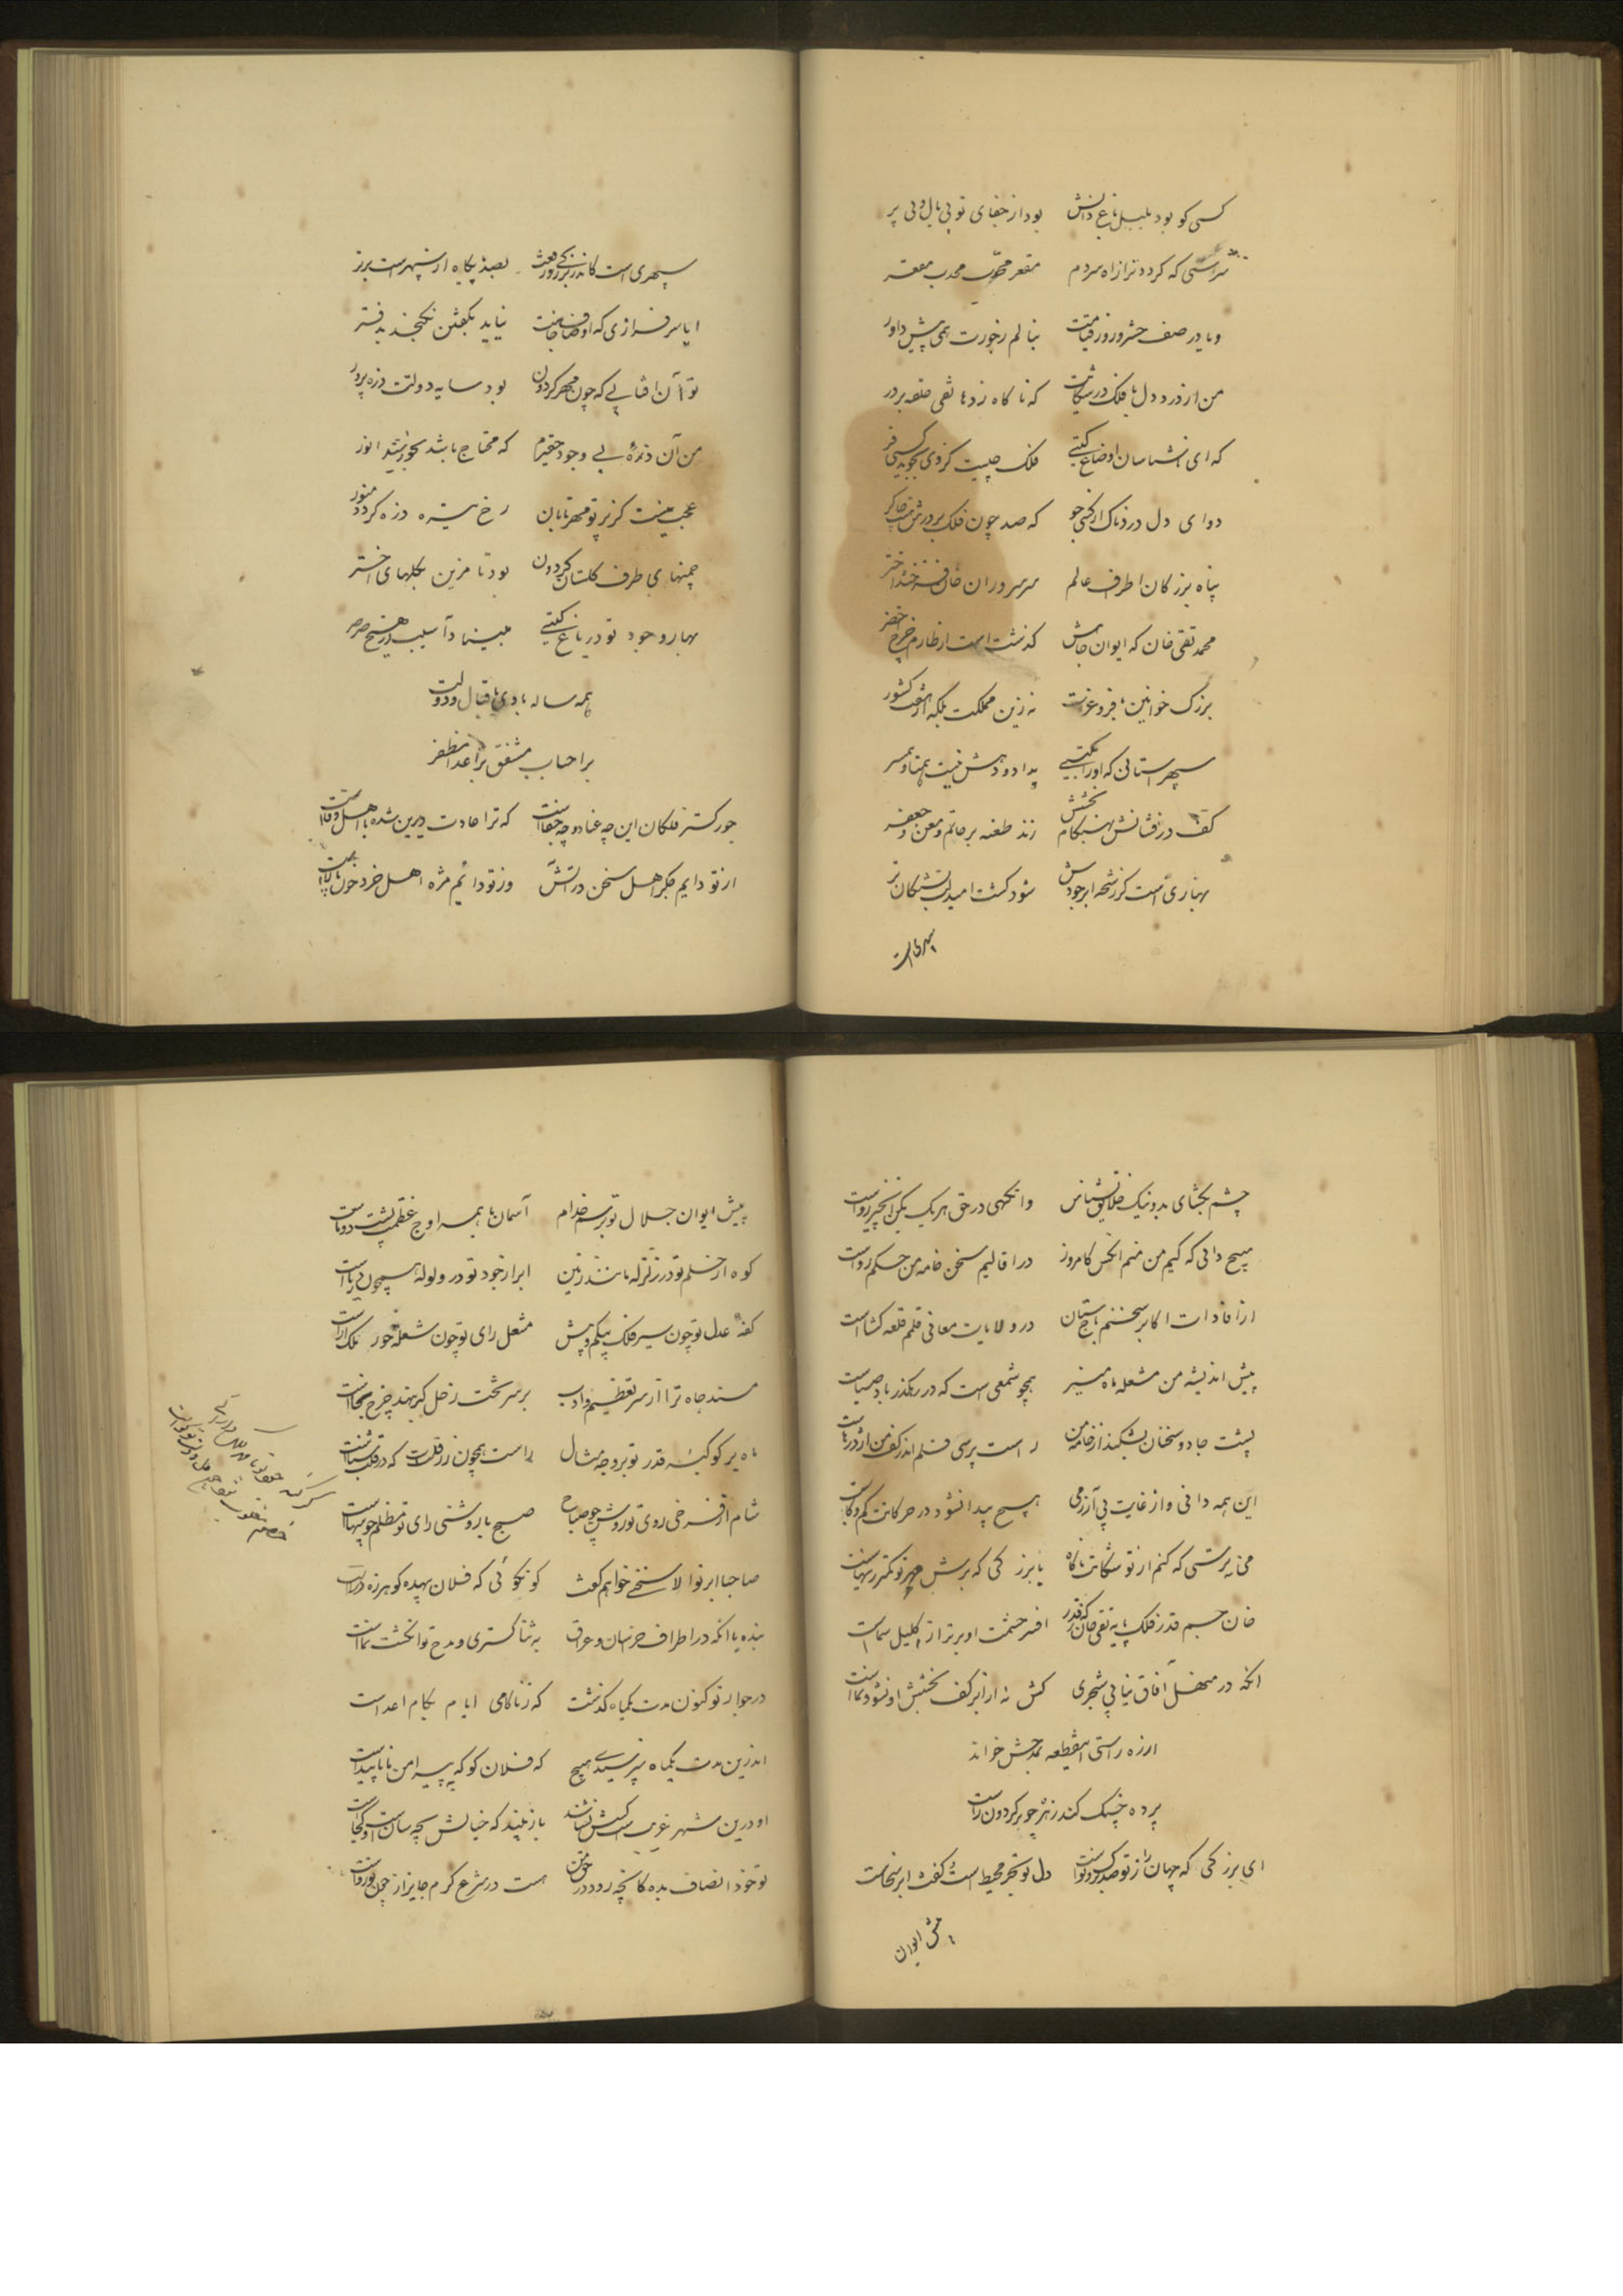 کسی کو بود بلبل باغ دانش بود از جفای تو بی بال و بی پر
که کردد ترا از راه مردم مقعر محدب محدب مقعر
و یا در صف حشر و روز قیامت بنالم ز جورت همی پیش داور
من از درد دل با فلک در شکایت که ناکاه زد هاتفی حلقه بر در
که ای ناشناسان اوضاع کیتی فلک چیست کز وی بجوید کسی فر
دوای دل دردناک از کسی جو که صد چون فلک بر درش هست چاکر
پناه بزرکان اطراف عالم سر سروران خان فرخنده اختر
محمد تقی خان که ایوان جاهش کذشت است از طارم چرخ اخضر
بزرک خوانین بفر و عزت نه زین مملکت بلکه از هفت کشور
سپهر استانی که او را بکیتی بداد و دهش نیست همتا و همسر
کف درفشانش بهنکام بخشش زند طعنه بر حاتم و معن و جعفر
بهاری است کز رشحه ابر جودش شود کشت امید لب تشنکان تر
سپهری است
سپهری است کاندر بزرکی و رفعت بصد پایه از نه سپهر است برتر
ایا سرفرازی که اوصاف ذاتت نیاید بکفتن نکنجد بدفتر
تو آن افتابی که چون مهر کردون بود سایه دولتت ذره پرور
من آن ذره بی وجود حقیرم که محتاج باشد بخورشید انور
عجب نیست کز پرتو مهر تابان رخ تیره ذره کردد منور
چمنهای طرف کلستان کردون بود تا مزین بکلهای اختر
بهار وجود تو در باغ کیتی مبیناد آسیب از هیچ صرصر
همه ساله بادی باقبال و دولت
بر احباب مشفق بر اعدا مظفر
جور کستر فلکا این چه عناد و چه جفا است که ترا عادت دیرین شده با اهل وفا است
از تو دایم جکر اهل سخن در آتش وز تو دائم مژه اهل خرد خون پالا است
چشم بکشای بد و نیک خلایق بشناس وانکهی در حق هر یک بکن انچیز رواست
هیچ دانی که کیم من منم انکس کامروز در اقالیم سخن خامه من حکم رواست
از افادات اکابر سخنم باج ستان در ولایات معانی قلمم قلعه کشا است
پیش اندیشه من مشعله ماه منیر همچو شمعی است که در رهکذر باد صباست
پشت جادو سخنان بشکند از خامه من راست پرسی قلم اندر کف من اژدرهاست
این همه دانی و از غایت بی آزرمی هیچ پیدا نشود در حرکاتت کم و کاست
می نترسی که کنم از تو شکایت ناکاه با بزرکی که برش مهر تو کمتر ز سهاست
خان جم قدر فلک پایه تقی خان که ز قدر افسر حشمت او برتر از اکلیل سماست
انکه در منهل آفاق نیابی شجری کش نه از ابر کف بخشش او نشو و نما است
از ره راستی اینقطعه بمدحش خواند
پرده چنک کند زهره چو بر کردون راست
ای بزرکی که جهان را ز تو صد برک و نواست دل تو بحر محیط است و کفت ابر سخاست
پیش ایوان
پیش ایوان جلال تو برسم خدام آسمان با همه اوج عظمت پشت دوتاست
کوه از حلم تو در زلزله مانند زمین ابر از جود تو در ولوله همچون دریا است
کفه عدل تو چون سیر فلک بی کم و بیش مشعل رای تو چون شعله خور ملک آراست
مسند جاه ترا از سر تعظیم و ادب بر سر تخت زحل کر بنهد چرخ بجا است
صاحبا بر تو الا سخنی خواهم کفت کو نکوئی که فلان بیهده کو هرزه دراست
بنده با انکه در اطراف خراسان و عراق به ثنا کستری و مدح تو انکشت نما است
در جوار تو کنون مدت یکماه کذشت که ز ناکامی ایام بکام اعداست
اندرین مدت یکماه نپرسیدی هیچ که فلان کو که به پیرامن ما ناپیدا است
او درین شهر غریب است کسش نشناسد باز بیند که خیالش بچه سان است و کجاست
تو خود انصاف بده کانچه رود در حق من هست در شرع کرم جایز از چون تو رواست